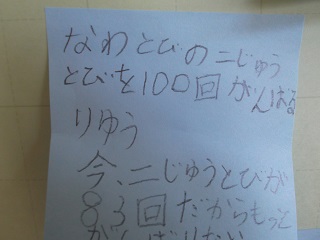 なわとびの二じゅう
とびを100回がんばる
りゆう
今、二じゅうとびが
83回だからもっと
がんばりたい